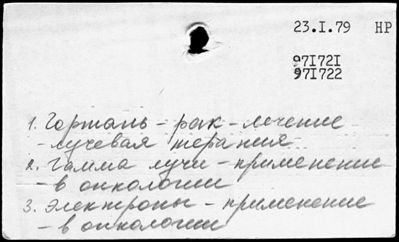 23.I.79 НР
97I72I
97I722
1. Гортань - рак - лечение
- лучевая терапия
2. Гамма лучи - применение
- в онкологии
3. Электроны - применение
- в онкологии